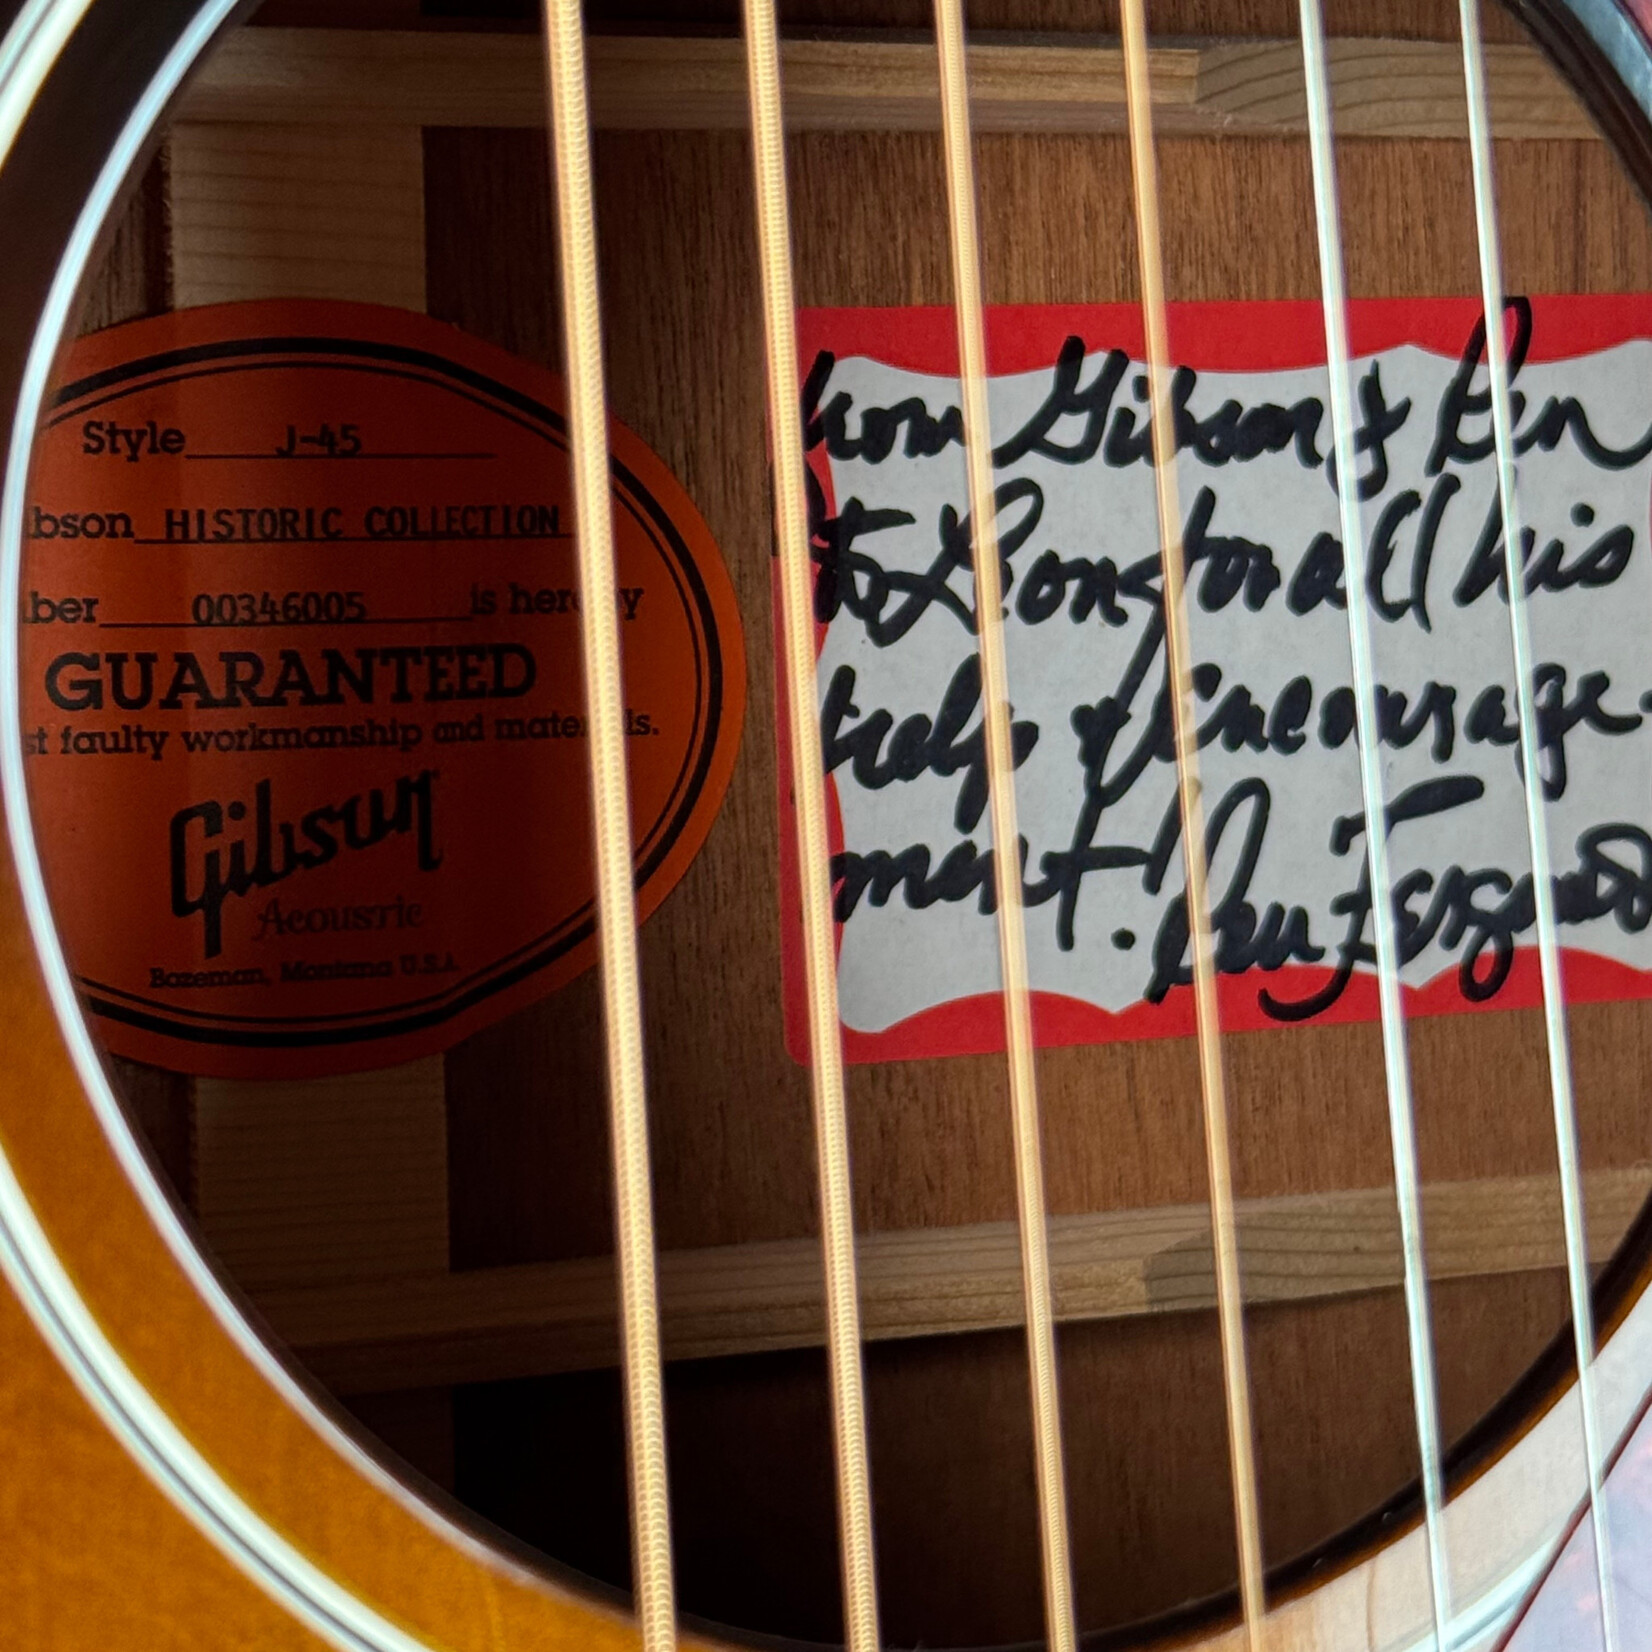 Style J-45
bson HISTORIC COLLECTION
ber 00346005 is hereby
GUARANTEED
st faulty workmanship and materials.
Gibson
Acoustic
Bozeman, Montana U.S.A.
from Gibson & Ren
to for all his
help & encourage
ment! Ren Ferguson